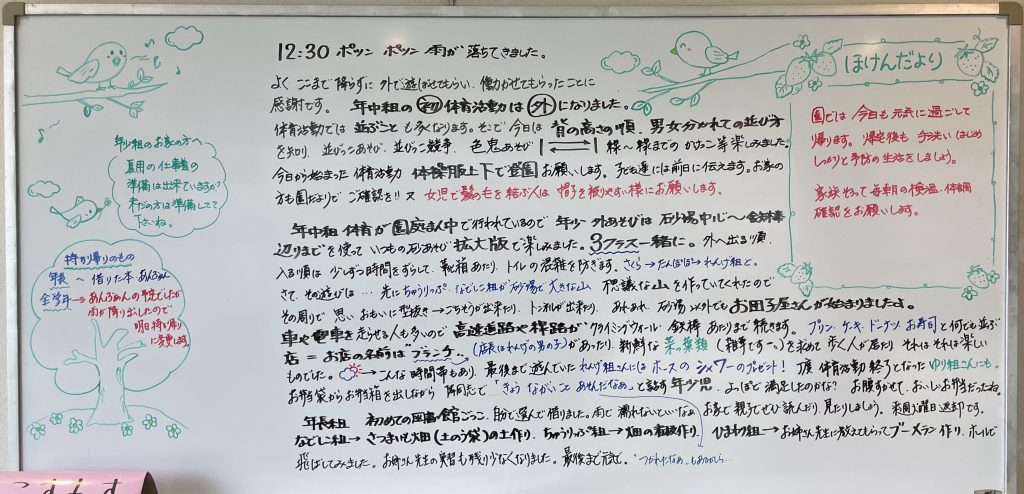 12:30 ポツン ポツン 雨が 落ちてきました。
よく ここまで 降らずに 外で遊ばせてもらい、働かせてもらったことに
感謝です。 年中組の 初 体育活動は 外 になりました。
体育活動では 並ぶことも 多くなります。そこで 今日は 背の高さの順、男女分かれての並び方
を知り、並びっこあそび、並びっこ競争、色鬼あそび 線〜線までの かけっこ等 楽しみました。
今日から始まった 体育活動 体操服上下で登園 お願いします。子ども達には前日に伝えます。お家の
方も園だよりで ご確認を!! 又 女児で髪の毛を結ぶ人は 帽子を被りやすい様にお願いします。
年中組 体育が 園庭まん中で行われているので 年少 外あそびは 砂場中心〜
辺りまでを使って いつもの砂あそび 拡大版で楽しみました。3クラス一緒に。外へ出る順、
入る順は 少しずつ時間をずらして、靴箱あたり、トイレの混雑を防ぎます。さくら→たんぽぽ→れんげ組と。
さて、その遊びは… 先に ちゅうりっぷ、なでしこ組が 砂場で 大きな山 不思議な山を 作っていてくれたので
その周りで 思い おもいに型抜き→ごちそうが出来たり、トンネルが出来たり、 あれあれ 砂場以外でも お団子屋さんが始まりましたよ。
車や電車を走らせる人も多いので 高速道路や線路が クライミングウォール 鉄棒 あたりまで 続きます。プリン、ケーキ、ドーナツ、お寿司 と何でも並ぶ
店 = お店の名前は ブランチ‥ (店長はれんげの男の子)があったり、新鮮な 菜っ葉類 (雑草です〜)を求めて 歩く人が居たり それは それは楽しい
ものでした。 →こんな 時間帯もあり、最後まで遊んでいた れんげ組さんには ホースの シャワーのプレゼント! 丁度 体育活動 終了となった ゆり組さんにも。
お弁当袋からお弁当箱を出しながら 隣同志で 「きょう ながいこと あそんだなあ」と話す 年少児、よっぽど 満足したのかな? お腹すかせて、おいしいお弁当だったね。
年長組 初めての図書館ごっこ、自分で選んで 借りました。雨で 濡れないといいなぁ お家で 親子で ぜひ 読んだり、見たりしましょう。来週火曜日返却です。
なでしこ組→ さつまいも畑(土のう袋)の土作り、ちゅうりっぷ組→ 畑の看板作り、ひまわり組→お姉さん先生に教えてもらって ブーメラン作り、ホールで
飛ばしてみました。お姉さん先生の実習も残り少なくなりました。最後まで元気で。 つかれたなぁ、もあるかしら…
年少組のお家の方へ
夏用の仕事着の
準備は出来ていますか?
まだの方は準備して
下さいね。
持ち帰りのもの
年長 〜 借りた本 あんふぁん
全学年→ あんふぁんの予定でしたが
雨が降り出したので
明日持ち帰り
に変更します。
ほけんだより
園では 今日も 元気に過ごして
帰ります。帰宅後も 手洗いはじめ
しっかりと予防の生活をしましょう。
家族そろって毎朝の検温・体調
確認をお願いします。